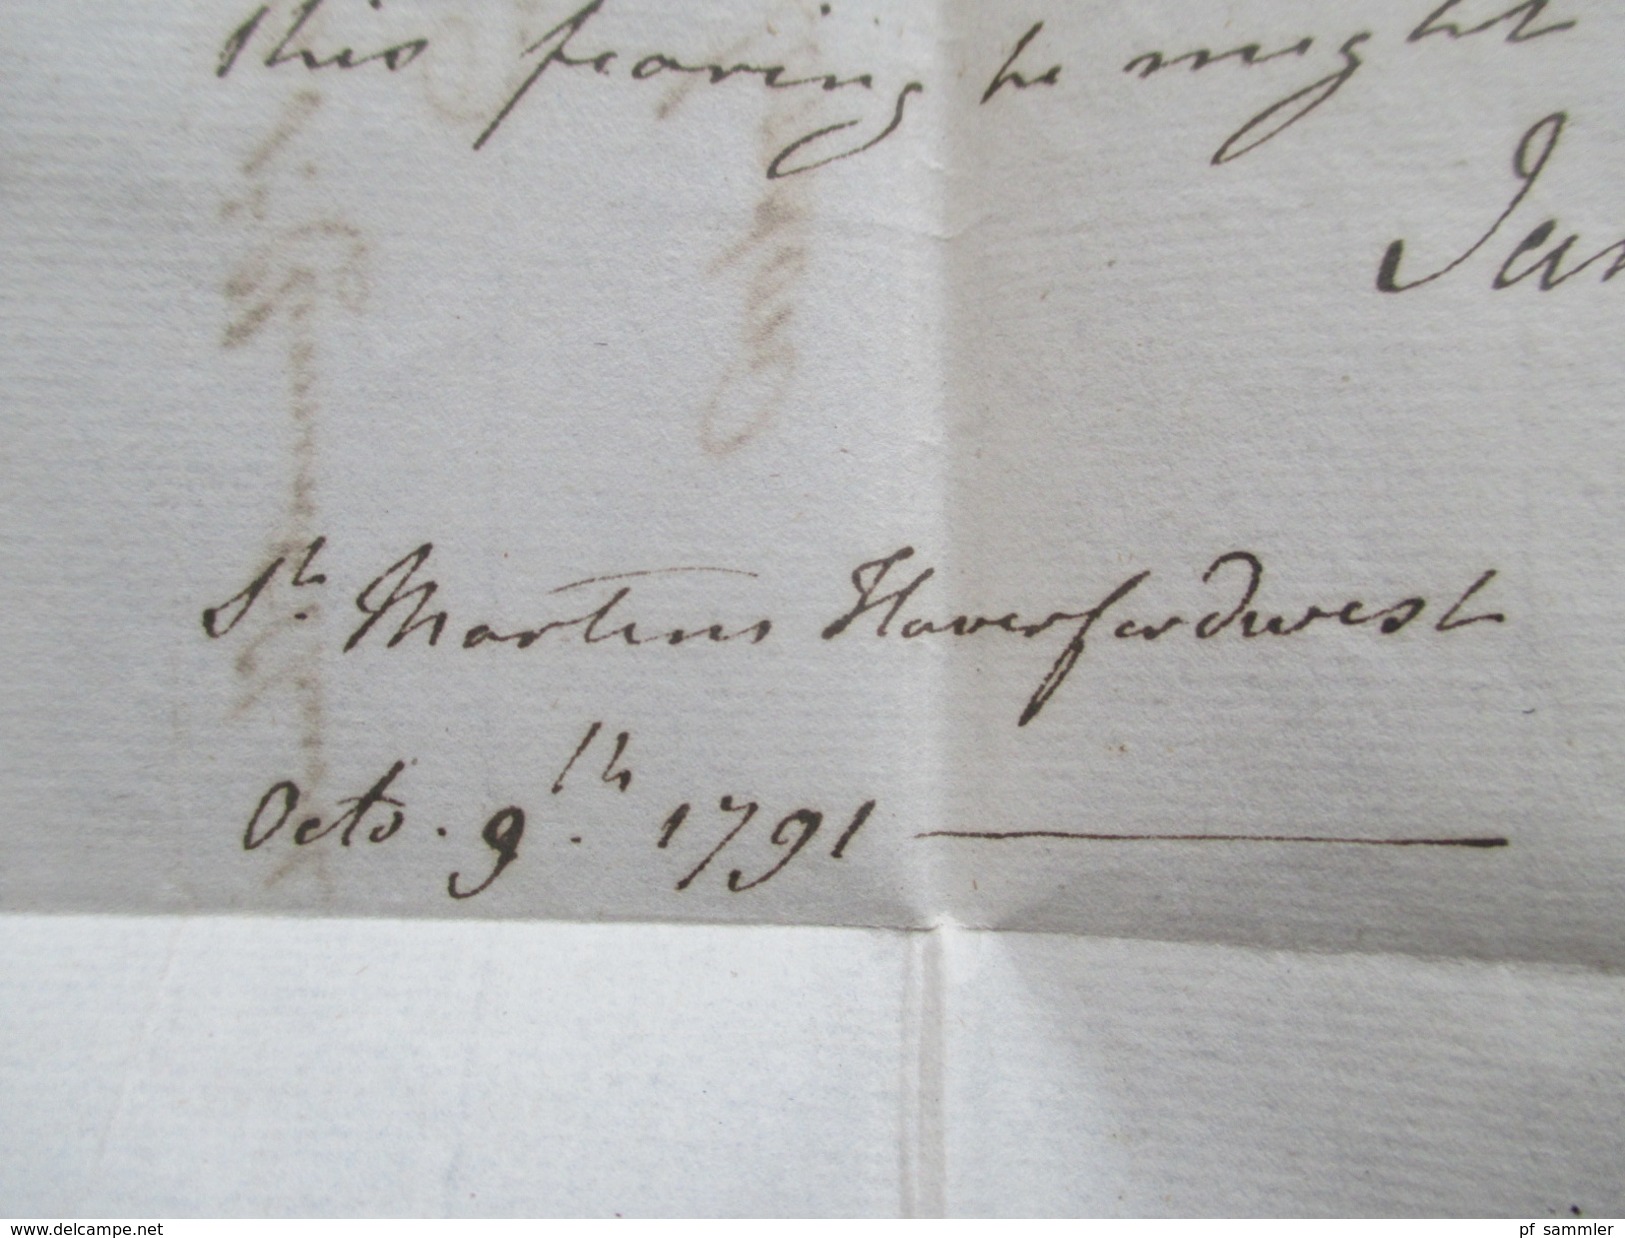 this fearing he might
I am
St. Martins Haverfordwest
Octo. 9th. 1791
www.delcampe.net
pf_sammler